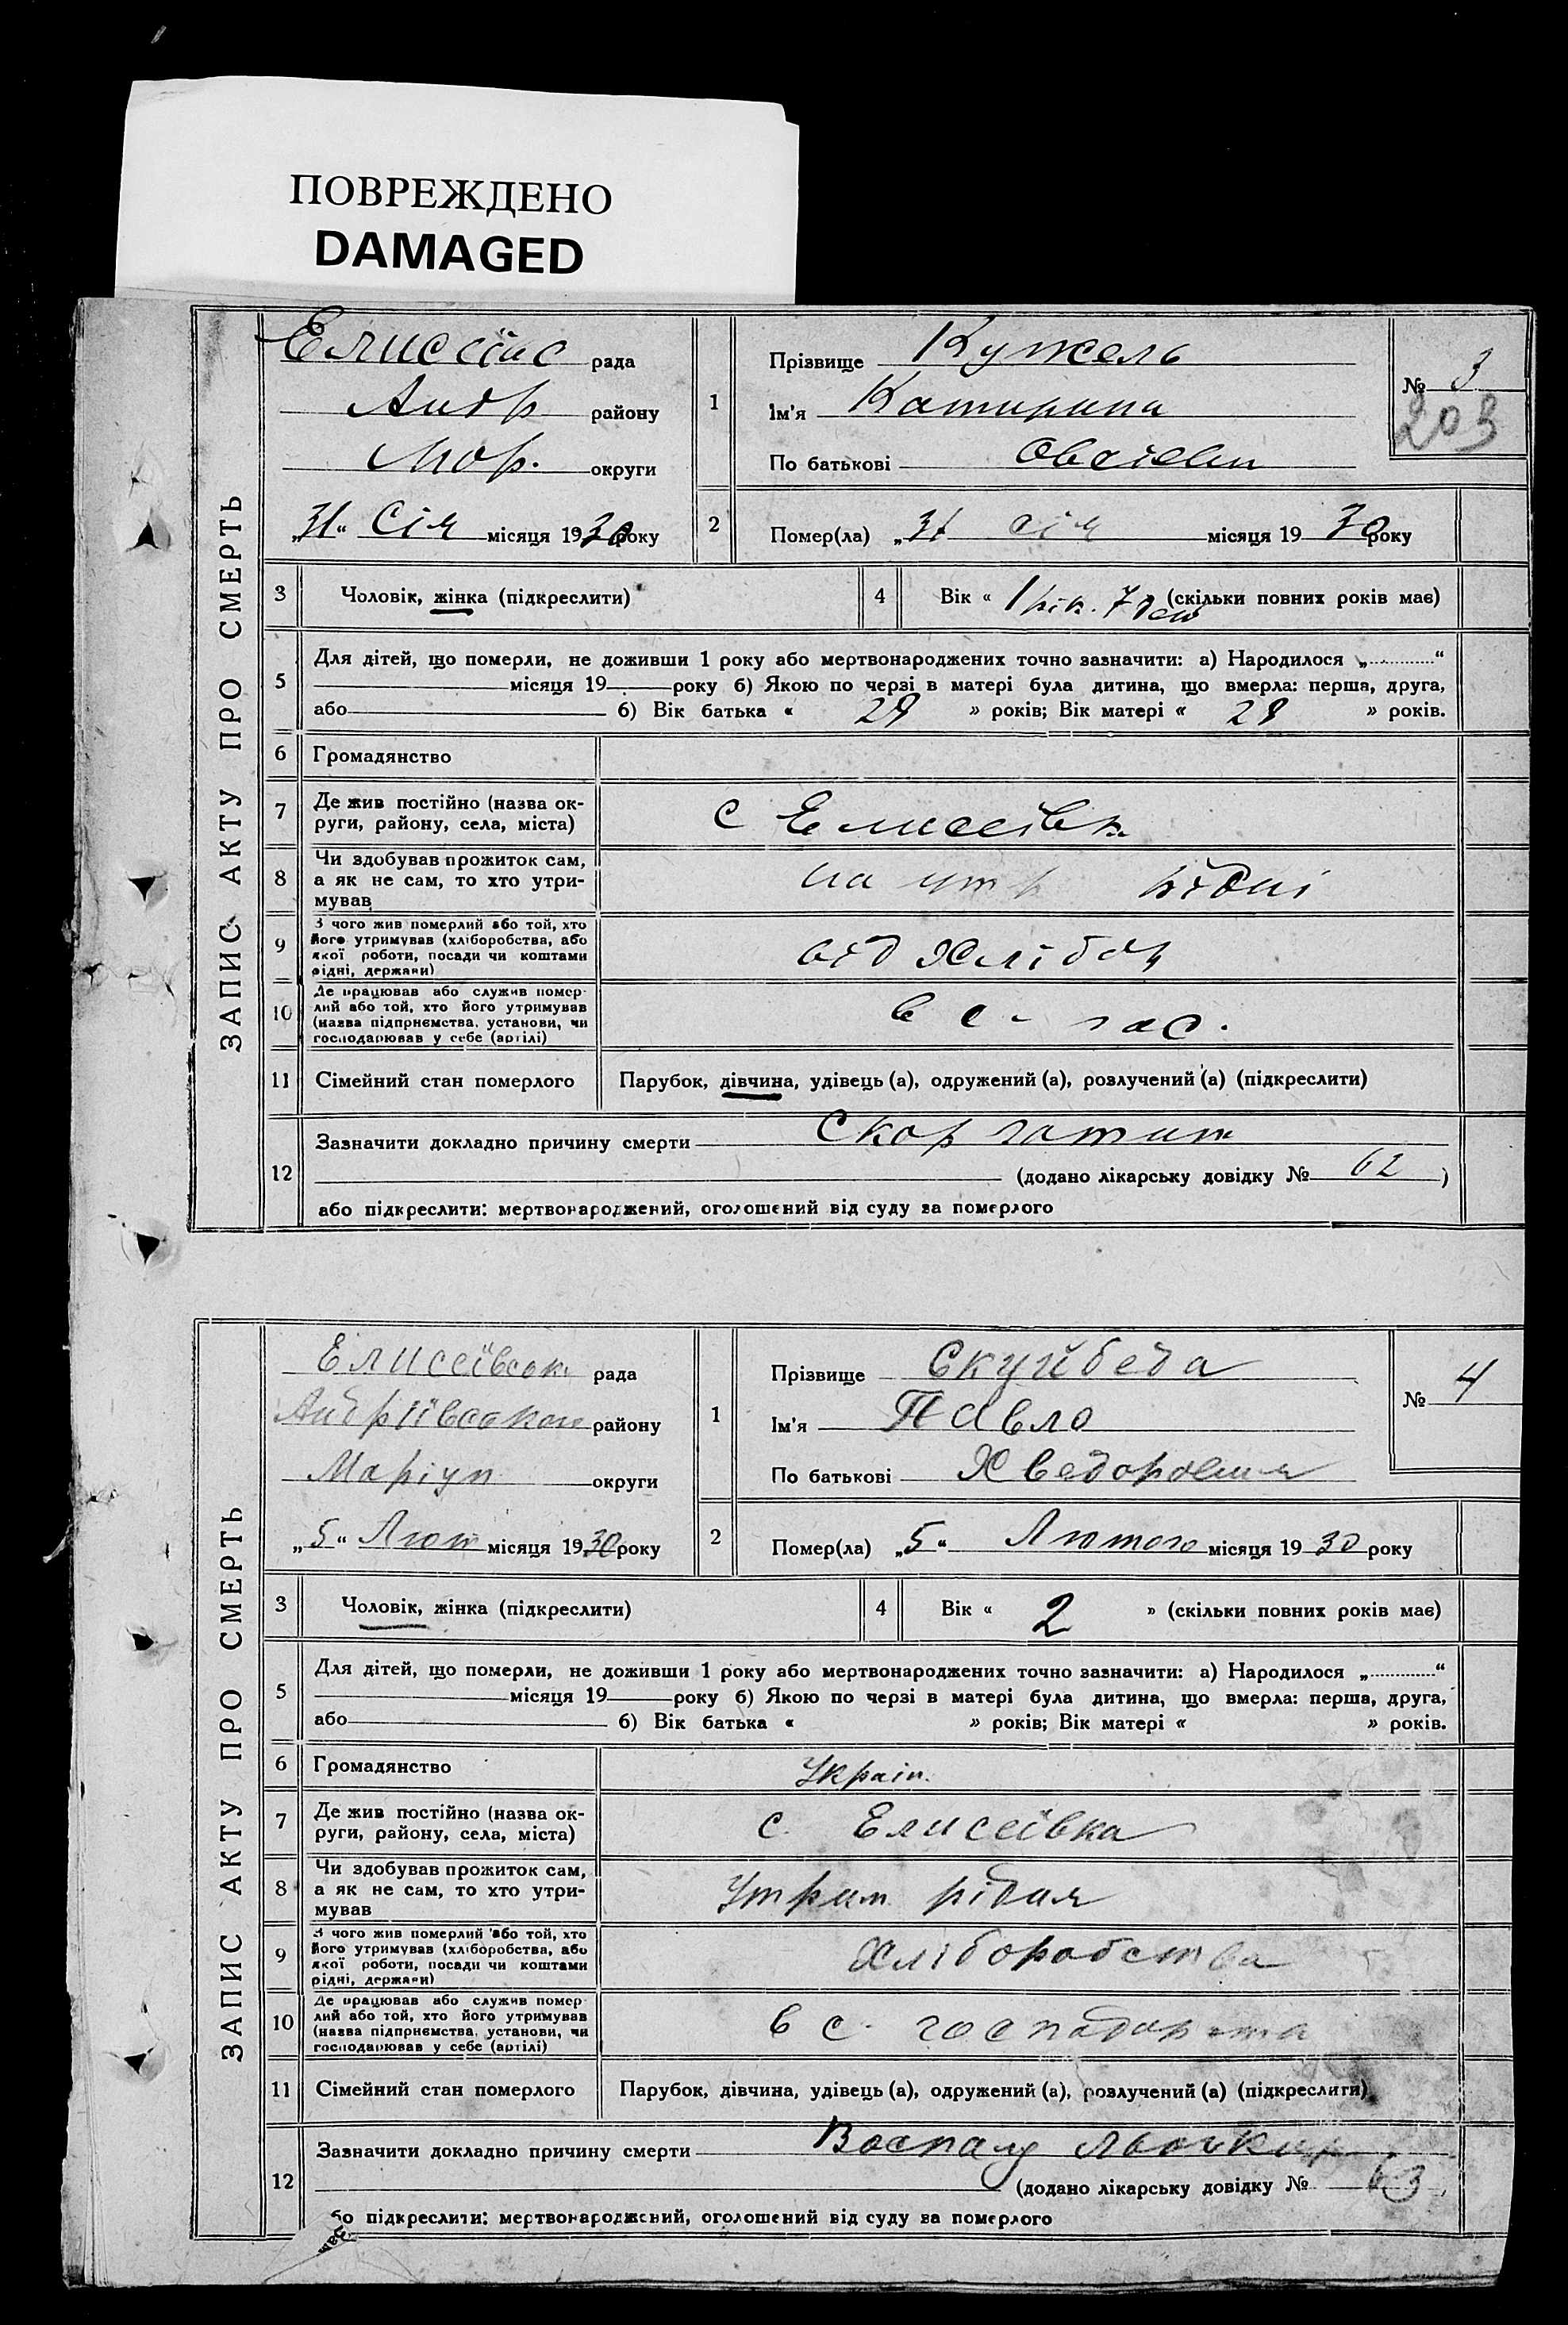 ПОВРЕЖДЕНО
DAMAGED
ЗАПИС АКТУ ПРО СМЕРТЬ
Елиссївс рада
Андр району
Мар. округи
„31“ Січ місяця 1930 року
1 Прізвище Кужель
Ім'я Катирина
По батькові
№ 3
203
2 Помер(ла) „31 січ місяця 19 30 року
3 Чоловік, жінка (підкреслити)
4 Вік « 1 рік. 7 (скільки повних років має)
5 Для дітей, що померли, не доживши 1 року або мертвонароджених точно зазначити: а) Народилося „............“
місяця 19 року б) Якою по черзі в матері була дитина, що вмерла: перша, друга,
або б) Вік батька « 29 » років; Вік матері « 28 » років.
6 Громадянство
7 Де жив постійно (назва ок-
руги, району, села, міста) с Елиссівк
8 Чи здобував прожиток сам,
а як не сам, то хто утри-
мував на утр рідні
9 З чого жив померлий або той, хто
його утримував (хліборобства, або
якої роботи, посади чи коштами
рідні, держави) від Хлібоц
10 Де працював або служив помер-
лий або той, хто його утримував
(назва підприємства, установи, чи
господарював у себе (артілі) в с- гос.
11 Сімейний стан померлого Парубок, дівчина, удівець (а), одружений (а), розлучений (а) (підкреслити)
12 Зазначити докладно причину смерти Скор
(додано лікарську довідку № 62 )
або підкреслити: мертвонароджений, оголошений від суду за померлого
ЗАПИС АКТУ ПРО СМЕРТЬ
Елисеївськ рада
Андріївського району
Маріуп округи
„5“ Лют місяця 1930 року
1 Прізвище Скуйбеда
Ім'я Павло
По батькові Хведорович
№ 4
2 Помер(ла) „5“ Лютого місяця 19 30 року
3 Чоловік, жінка (підкреслити)
4 Вік « 2 » (скільки повних років має)
5 Для дітей, що померли, не доживши 1 року або мертвонароджених точно зазначити: а) Народилося „............“
місяця 19 року б) Якою по черзі в матері була дитина, що вмерла: перша, друга,
або б) Вік батька « » років; Вік матері « » років.
6 Громадянство Україн.
7 Де жив постійно (назва ок-
руги, району, села, міста) с. Елисеївка
8 Чи здобував прожиток сам,
а як не сам, то хто утри-
мував Утрим рідня
9 З чого жив померлий або той, хто
його утримував (хліборобства, або
якої роботи, посади чи коштами
рідні, держави) Хліборобства
10 Де працював або служив помер-
лий або той, хто його утримував
(назва підприємства, установи, чи
господарював у себе (артілі) в с.
11 Сімейний стан померлого Парубок, дівчина, удівець (а), одружений (а), розлучений (а) (підкреслити)
12 Зазначити докладно причину смерти Воспалу
(додано лікарську довідку № 63
бо підкреслити: мертвонароджений, оголошений від суду за померлого